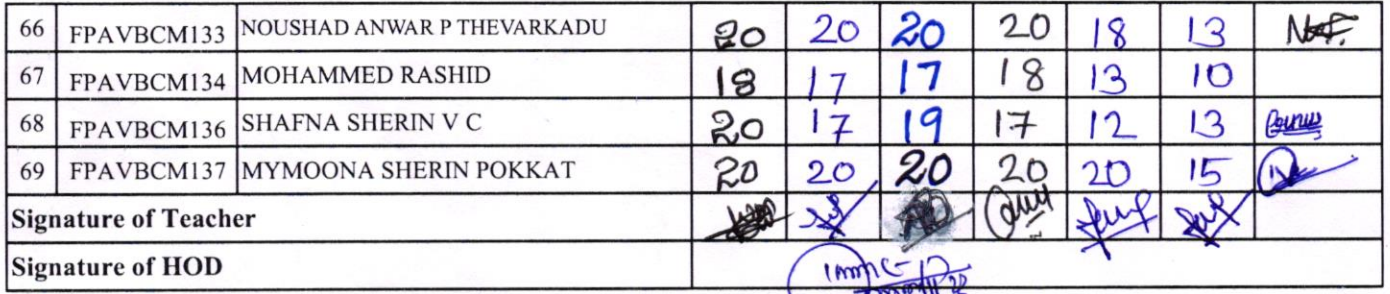 66 FPAVBCM133 NOUSHAD ANWAR P THEVARKADU 20 20 20 20 18 13
67 FPAVBCM134 MOHAMMED RASHID 18 17 17 18 13 10
68 FPAVBCM136 SHAFNA SHERIN V C 20 17 19 17 12 13
69 FPAVBCM137 MYMOONA SHERIN POKKAT 20 20 20 20 20 15
Signature of Teacher
Signature of HOD